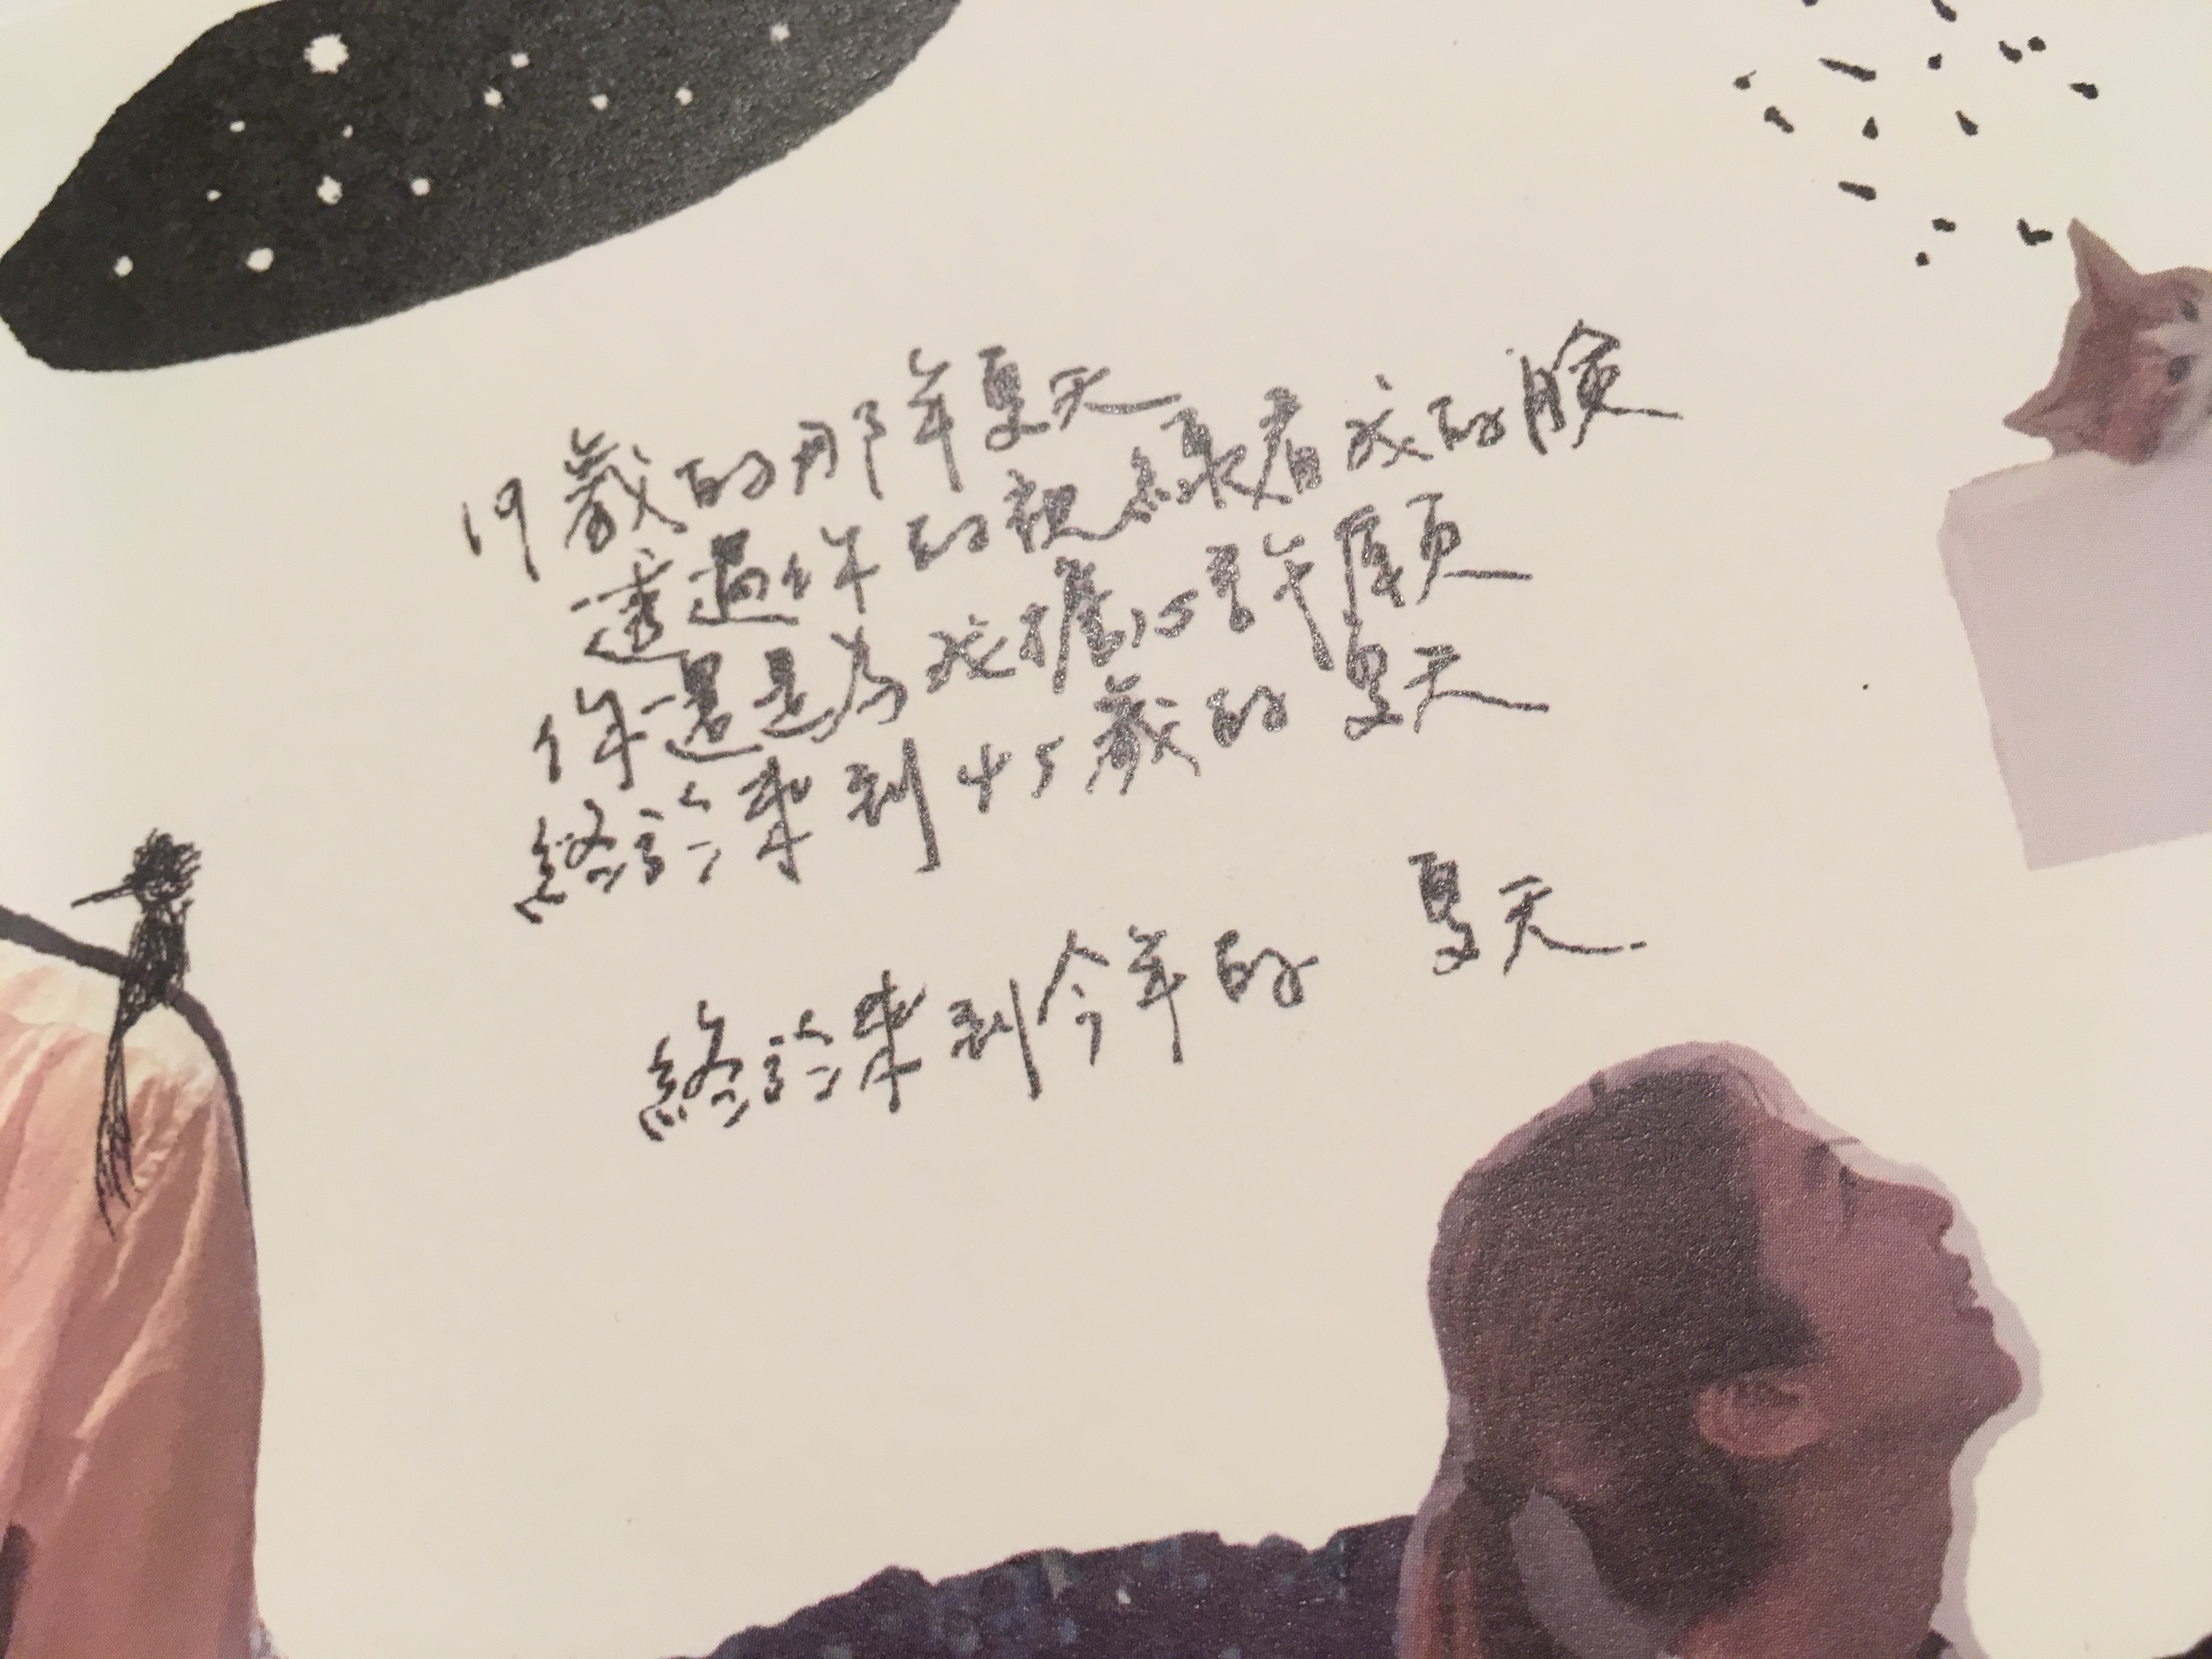 19歲的那年夏天
透過你的視線看我的臉
你還是為我擔心許願
終於來到45歲的夏天
終於來到今年的 夏天